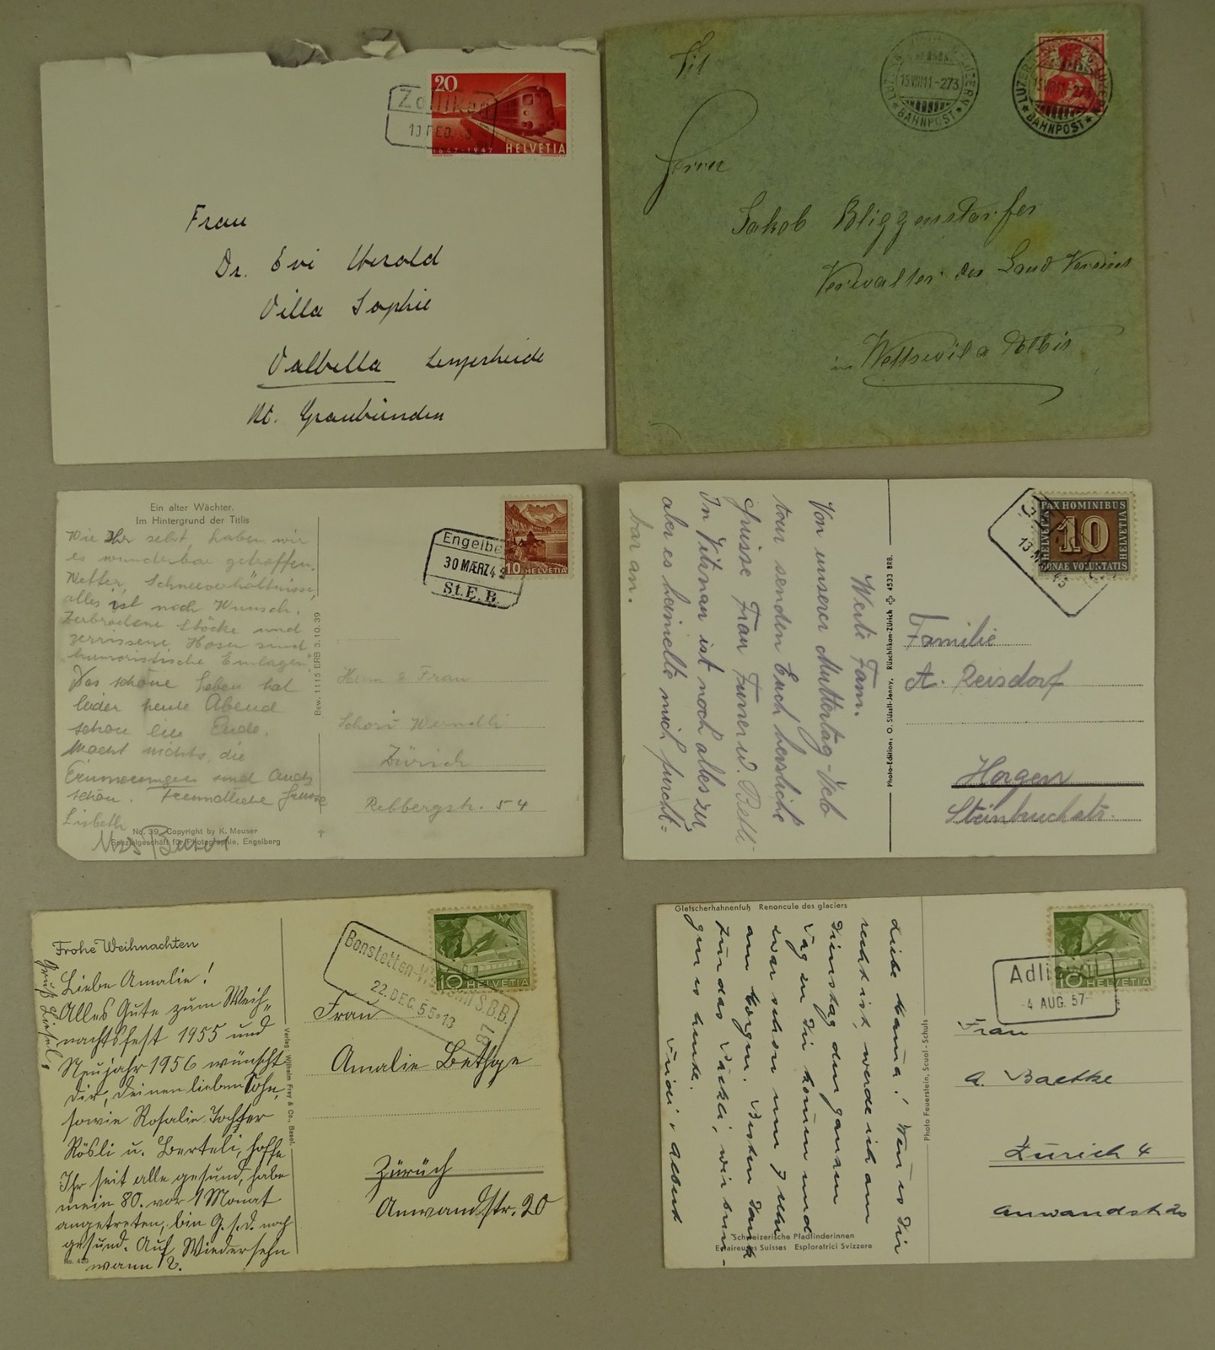 20
Zollikon
10 FEB.
1847-1947 HELVETIA
Frau
Dr. Evi Herold
Villa Sophie
Valbella Lenzerheide
Kt. Graubünden
15 VIII 11 - 273
BAHNPOST
LUZERN
BAHNPOST
Herrn
Jakob Bliggenstorfer
Verwalter des Land Vereins
in Wettswil a Albis
Ein alter Wächter.
Im Hintergrund der Titlis
Wie Ihr selbst, haben wir
es wunderbar getroffen.
Wetter, Schneeverhältnisse,
alles ist nach Wunsch.
Zerbrochene Stöcke und
zerrissene Hosen sind
"humoristische Einlagen"
Das schöne Leben hat
leider heute Abend
schon ein Ende.
Macht nichts, die
Erinnerungen sind auch
schön. Freundliche Grüsse
Lisbeth
No. 39 Copyright by K. Meuser
Spezialgeschäft für Photographie, Engelberg
Bew. 1115 ERB 3. 10. 39
Engelbe
30 MÆRZ 4
St. E. B.
10 HELVETIA
Herrn & Frau
Zürich
Rebbergstr. 54
Werte Fam.
Von unserer Muttertag-Velo
tour senden Euch herzliche
Grüsse Frau Furrer u. Betli
In Vitznau ist noch alles zu
aber es heimelte mich furcht-
bar an.
Photo-Edition, O. Süssli-Jenny, Rüschlikon-Zürich 4533 BRB.
PAX HOMINIBUS
HELVETIA 10 HELVETIA
BONAE VOLUNTATIS
13 45
Familie
A. Reisdorf
Horgen
Steinbruchstr.
Frohe Weihnachten
Liebe Amalie!
Alles Gute zum Weih-
nachtsfest 1955 und
Neujahr 1956 wünscht
Dir, Deinen lieben Sohn,
sowie Rosalie Tochter
Rösli u. Berteli, hoffe
Ihr seit alle gesund, habe
mein 80. vor 1 Monat
angetreten, bin G. s. d. noch
gesund. Auf Wiedersehn
wann?
Gruß Lisel
Verlag Wilhelm Frey & Co., Basel.
Bonstetten-Wettswil S.B.B.
22. DEC. 55-13
10 HELVETIA
Frau
Amalie Bethge
Zürich
Anwandstr. 20
Gletscherhahnenfuß Renoncule des glaciers
Liebe Mama! Wenn es Dir
recht ist, werde ich am
Dienstag den ganzen
Tag zu Dir kommen und
zwar schon um 7 Uhr
am Morgen. Besten Dank
für das Päckli, wir bru-
Albert
Schweizerische Pfadfinderinnen
Eclaireuses Suisses Esploratrici Svizzere
Photo Feuerstein, Scuol-Schuls
Adliswil
-4 AUG. 57-
10 HELVETIA
Frau
A. Baethe
Zürich 4
Anwandstr. 20